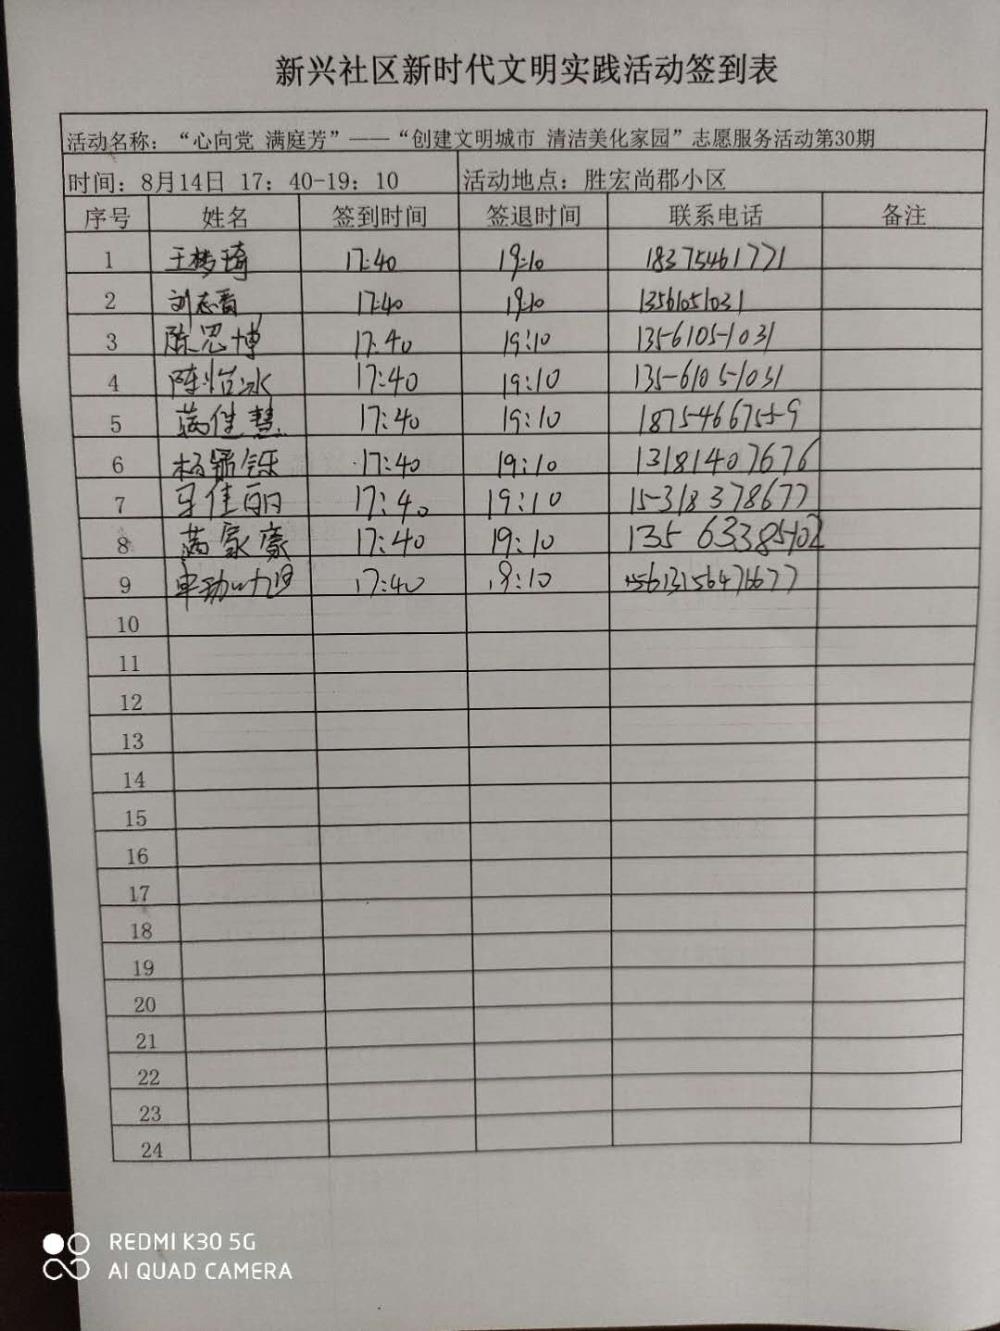 新兴社区新时代文明实践活动签到表
活动名称：“心向党 满庭芳”——“创建文明城市 清洁美化家园”志愿服务活动第30期
时间：8月14日 17：40-19：10 活动地点：胜宏尚郡小区
序号 姓名 签到时间 签退时间 联系电话 备注
1 王梦琦 17:40 19:10 18375461771
2 刘志晋 17:40 19:10 13561051031
3 陈思博 17:40 19:10 13561051031
4 陈怡冰 17:40 19:10 13561051031
5 满佳慧 17:40 19:10 18754667559
6 17:40 19:10 13181407676
7 佳丽 17:40 19:10 15318378677
8 满家豪 17:40 19:10 13563385102
9 17:40 19:10
10
11
12
13
14
15
16
17
18
19
20
21
22
23
24
REDMI K30 5G
AI QUAD CAMERA